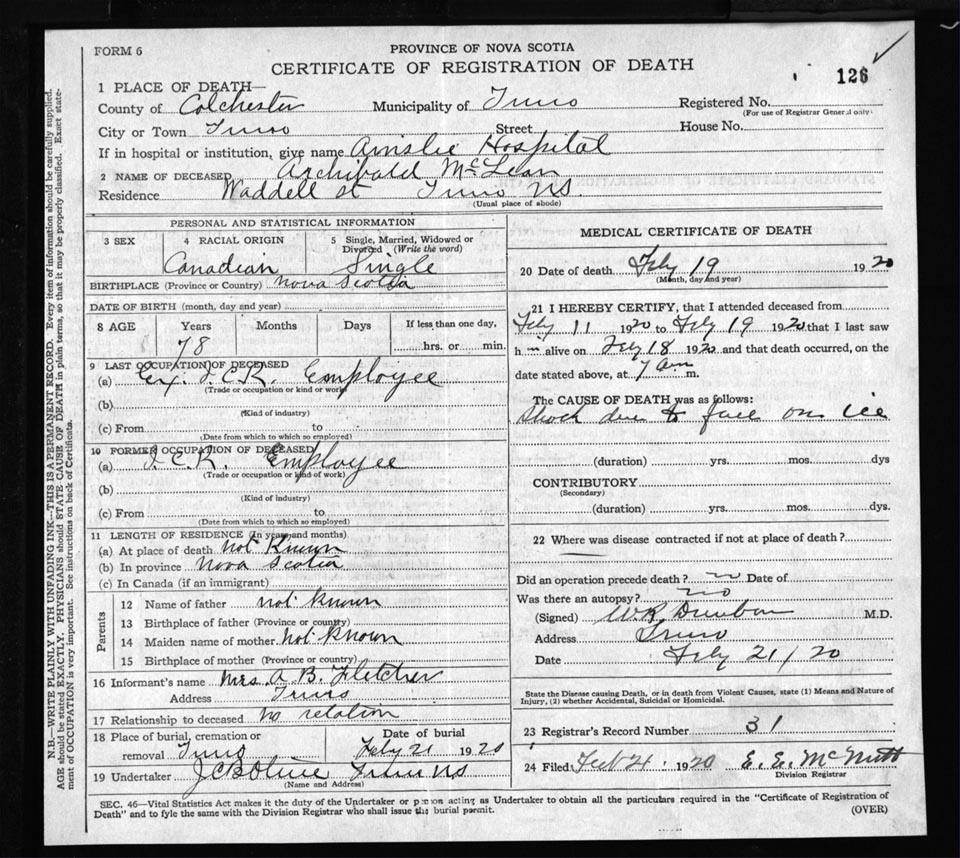 FORM 6
PROVINCE OF NOVA SCOTIA
CERTIFICATE OF REGISTRATION OF DEATH
126
1 PLACE OF DEATH—
County of Colchester Municipality of Truro Registered No.
(For use of Registrar General only)
City or Town Truro Street House No.
If in hospital or institution, give name Ainslie Hospital
2 NAME OF DECEASED Archibald McLean
Residence Waddell St Truro NS.
(Usual place of abode)
PERSONAL AND STATISTICAL INFORMATION
3 SEX 4 RACIAL ORIGIN 5 Single, Married, Widowed or Divorced (Write the word)
Canadian Single
BIRTHPLACE (Province or Country) Nova Scotia
DATE OF BIRTH (month, day and year)
8 AGE Years Months Days If less than one day,
78 hrs. or min.
9 LAST OCCUPATION OF DECEASED
(a) Ex. I.C.R. Employee
(Trade or occupation or kind of work)
(b)
(Kind of industry)
(c) From to
(Date from which to which so employed)
10 FORMER OCCUPATION OF DECEASED
(a) I.C.R. Employee
(Trade or occupation or kind of work)
(b)
(Kind of industry)
(c) From to
(Date from which to which so employed)
11 LENGTH OF RESIDENCE (In years and months)
(a) At place of death not Known
(b) In province Nova Scotia
(c) In Canada (if an immigrant)
Parents
12 Name of father not known
13 Birthplace of father (Province or country)
14 Maiden name of mother not known
15 Birthplace of mother (Province or country)
16 Informant's name Mrs. A. B. Fletcher
Address Truro
17 Relationship to deceased no relation
18 Place of burial, cremation or removal Truro Date of burial Feby 21 1920
19 Undertaker Truro NS
(Name and Address)
MEDICAL CERTIFICATE OF DEATH
20 Date of death Feby 19 1920
(Month, day and year)
21 I HEREBY CERTIFY, that I attended deceased from
Feby 11 1920 to Feby 19 1920 that I last saw
h m alive on Feby 18 1920 and that death occurred, on the
date stated above, at 7 am m.
The CAUSE OF DEATH was as follows:
Shock due to fall on ice
(duration) yrs. mos. dys
CONTRIBUTORY
(Secondary)
(duration) yrs. mos. dys.
22 Where was disease contracted if not at place of death?
Did an operation precede death? no Date of
Was there an autopsy? no
(Signed) W.R. Dunbar M.D.
Address Truro
Date Feby 21/20
State the Disease causing Death, or in death from Violent Causes, state (1) Means and Nature of
Injury, (2) whether Accidental, Suicidal or Homicidal.
23 Registrar's Record Number 31
24 Filed Feb 21. 1920 E. E. McNutt
Division Registrar
SEC. 46—Vital Statistics Act makes it the duty of the Undertaker or person acting as Undertaker to obtain all the particulars required in the "Certificate of Registration of
Death" and to fyle the same with the Division Registrar who shall issue the burial permit.
(OVER)
N.B.—WRITE PLAINLY WITH UNFADING INK—THIS IS A PERMANENT RECORD. Every item of information should be carefully supplied.
AGE should be stated EXACTLY. PHYSICIANS should STATE CAUSE OF DEATH in plain terms, so that it may be properly classified. Exact state-
ment of OCCUPATION is very important. See instructions on back of Certificate.